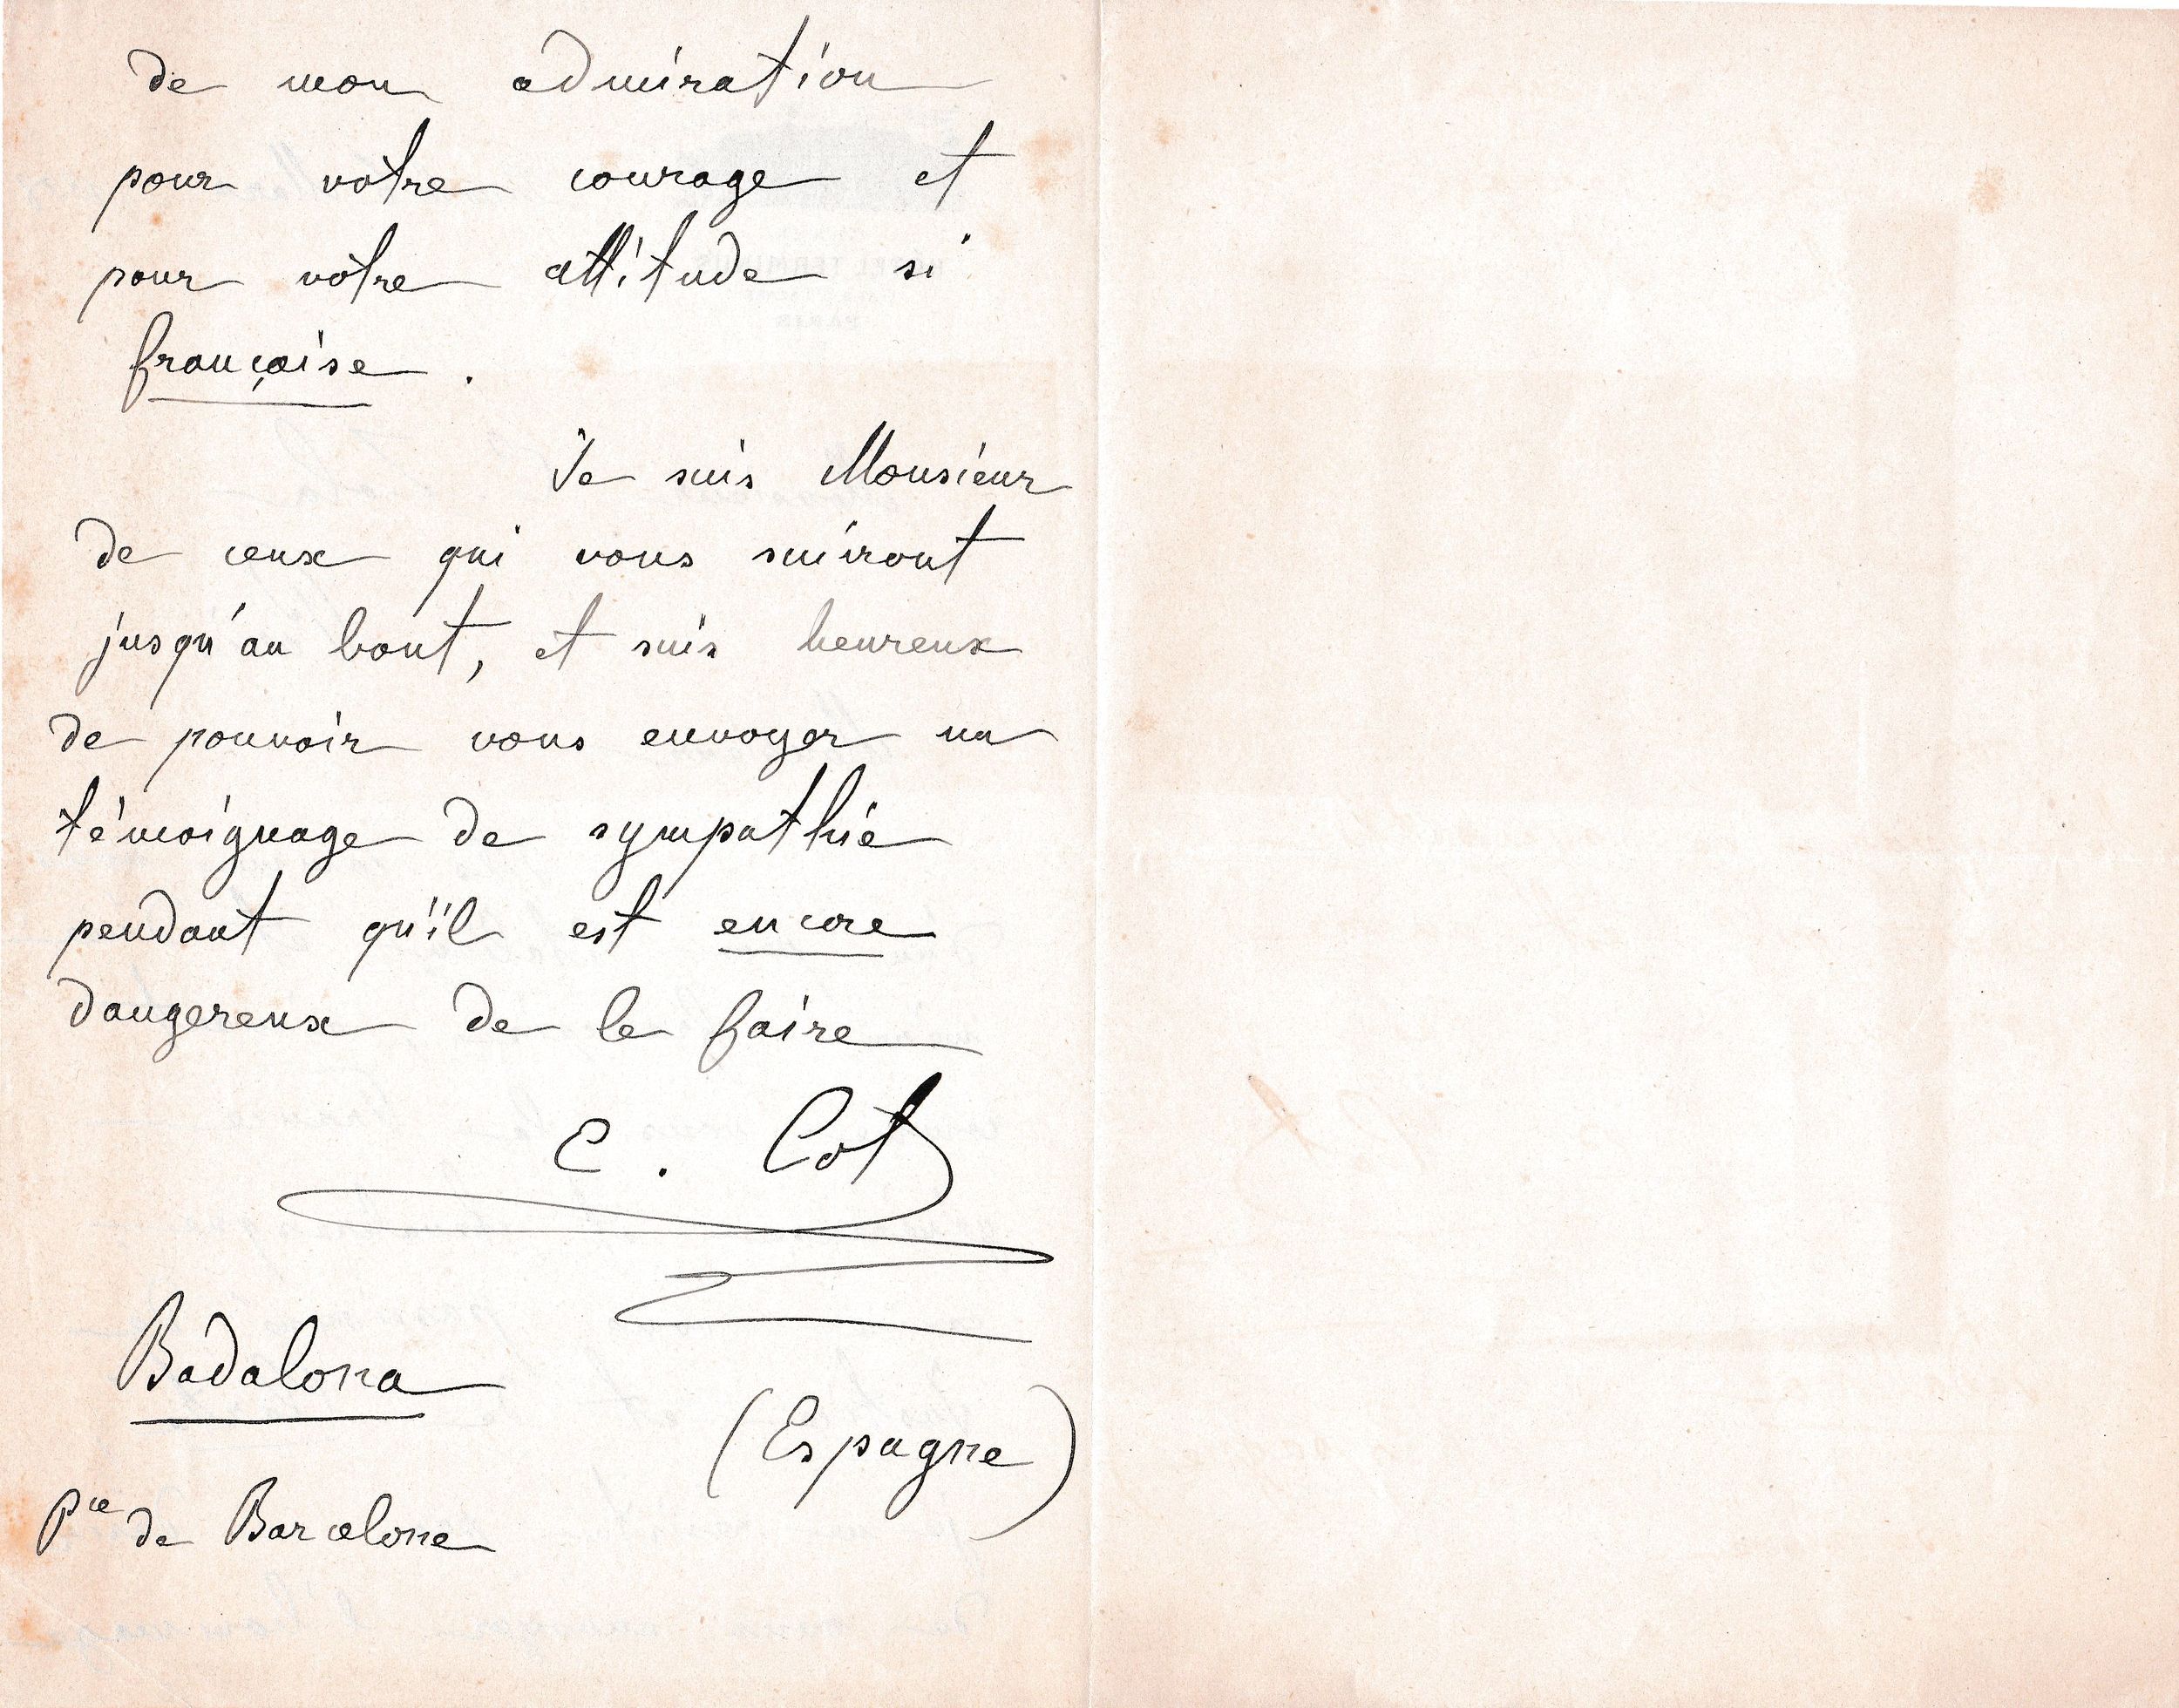 de mon admiration
pour votre courage et
pour votre attitude si
française.
Je suis Monsieur
de ceux qui vous suivront
jusqu'au bout, et suis heureux
de pouvoir vous envoyer un
témoignage de sympathie
pendant qu'il est encore
dangereux de le faire
E. Cot
Badalona
(Espagne)
Pce de Barcelone